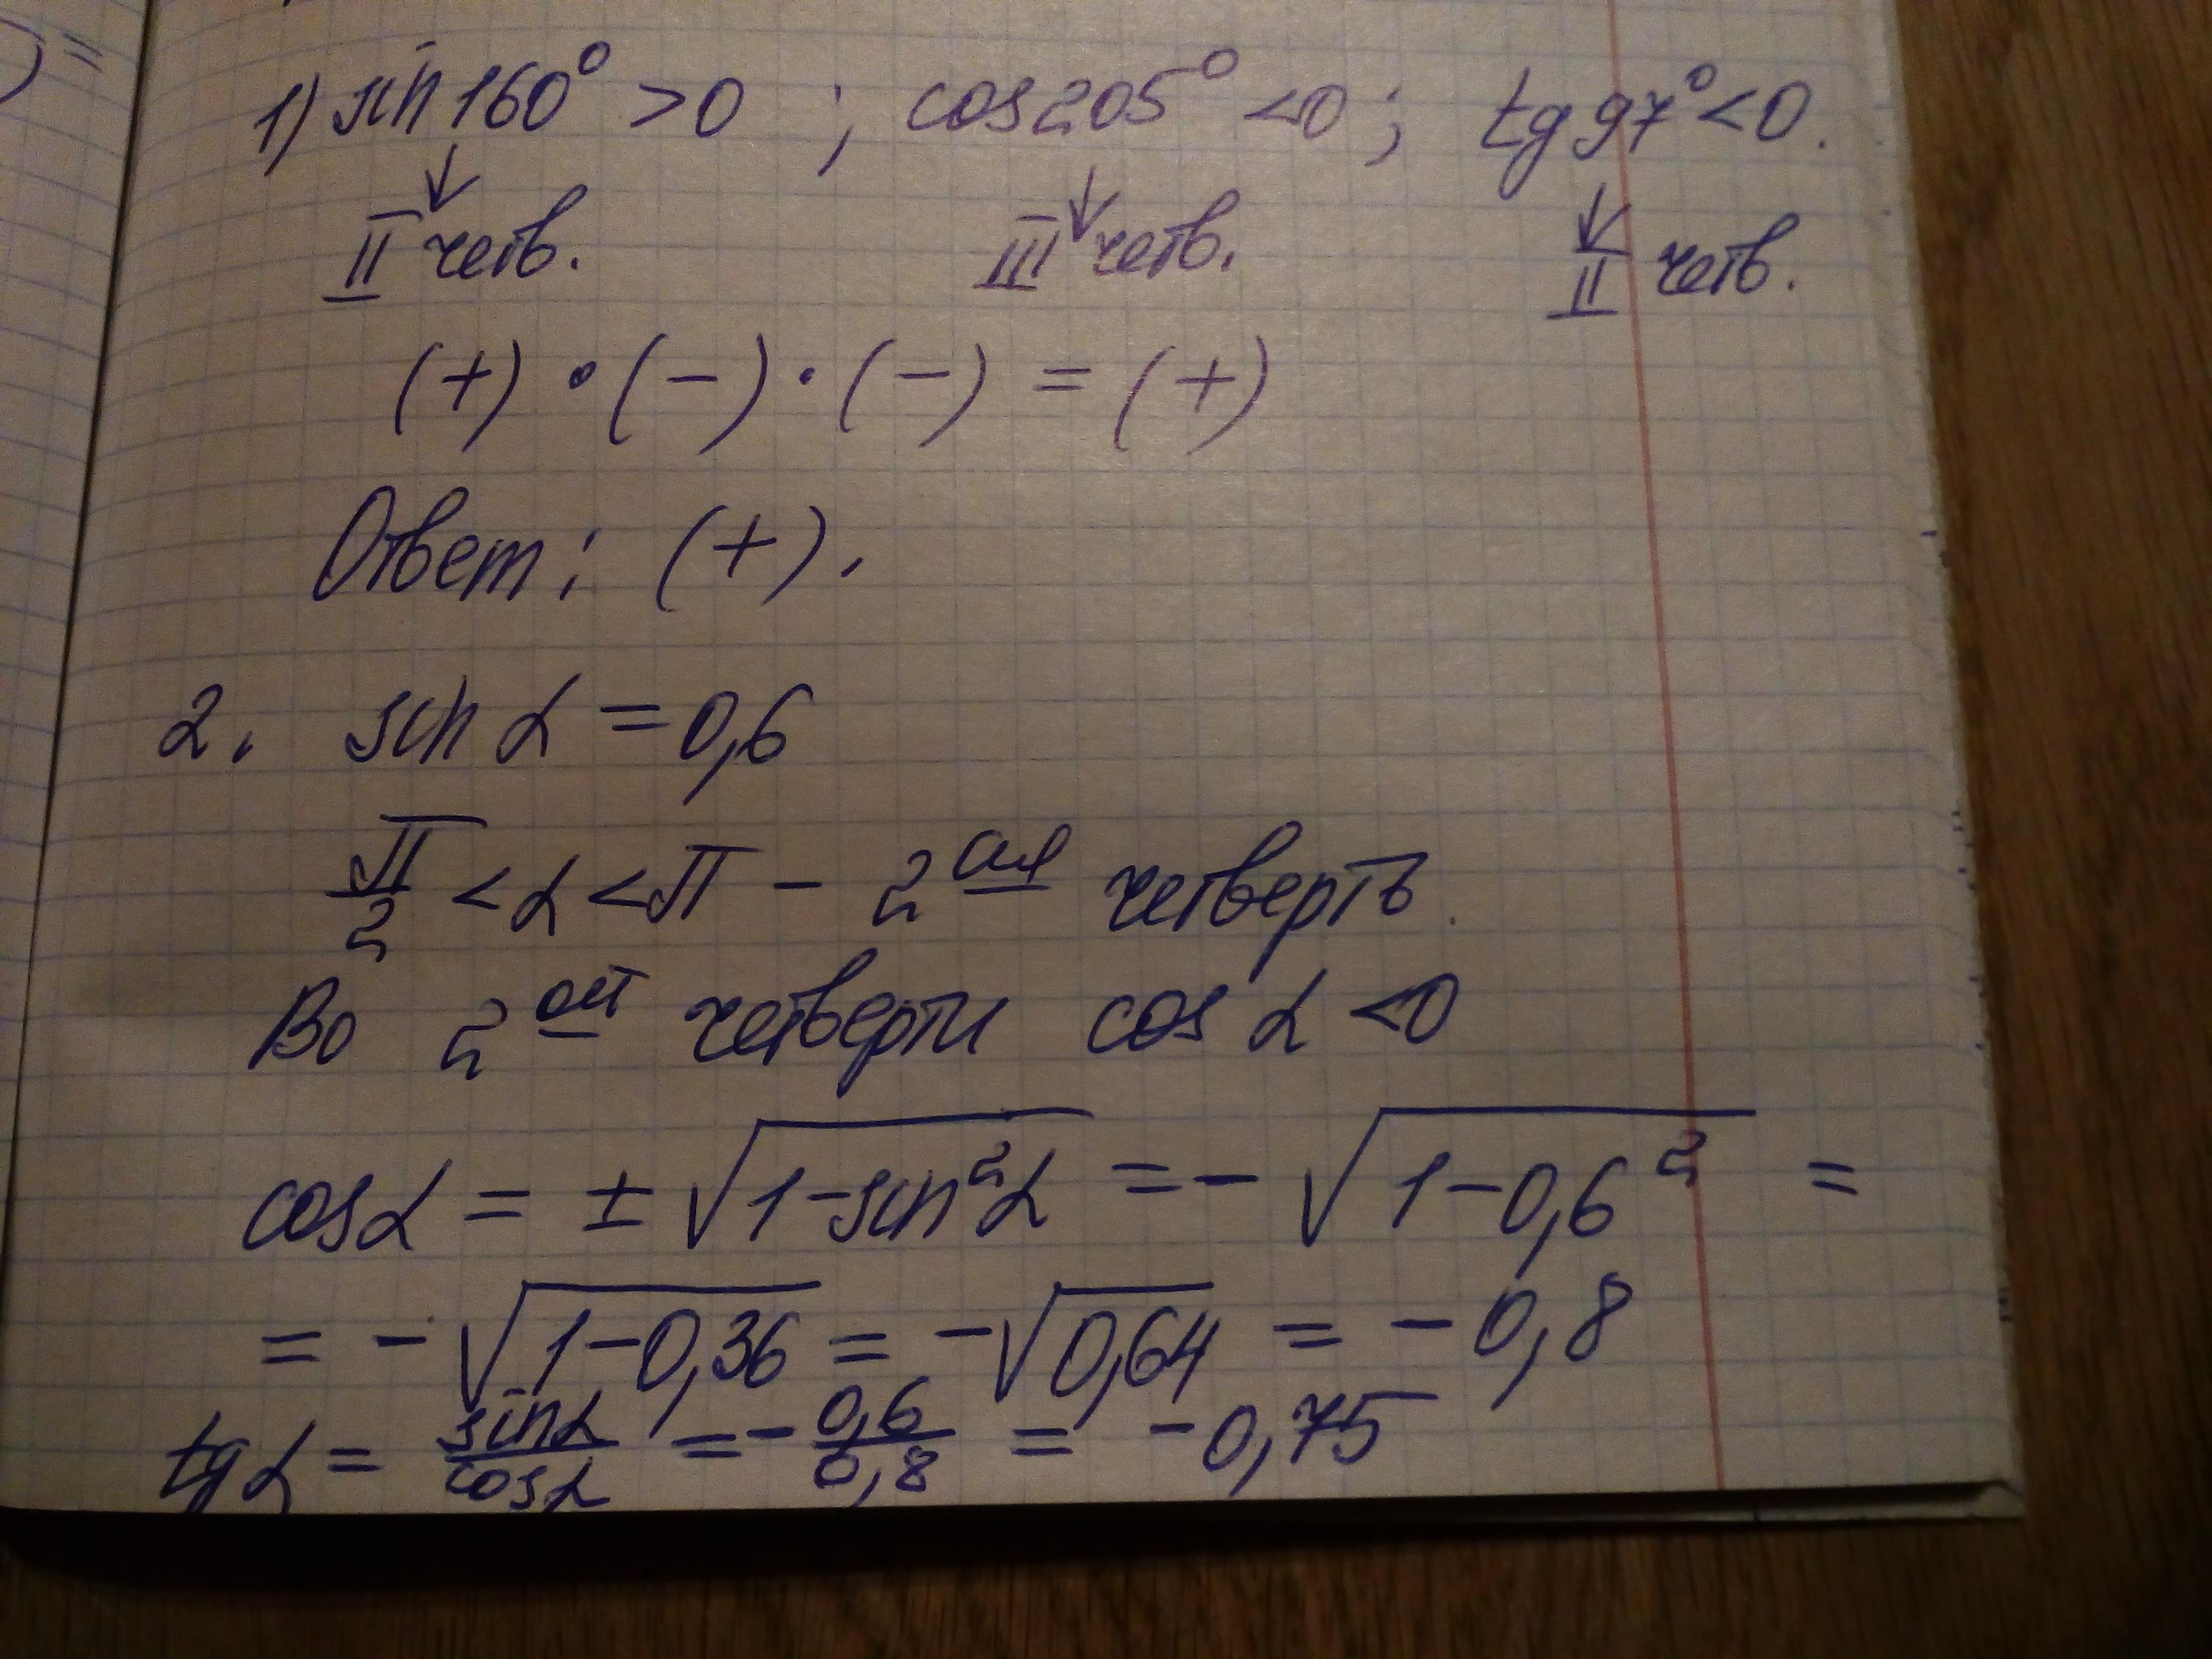 ) =
1) sin 160° > 0 ; cos 205° < 0 ; tg 97° < 0.
↓ ↓ ↓
II четв. III четв. II четв.
(+) • (−) • (−) = (+)
Ответ: (+).
2. sin α = 0,6
π/2 < α < π − 2ая четверть.
Во 2ой четверти cos α < 0
cos α = ± √(1 − sin²α) = − √(1 − 0,6²) =
= − √(1 − 0,36) = − √0,64 = − 0,8
tg α = sin α/cos α = − 0,6/0,8 = − 0,75